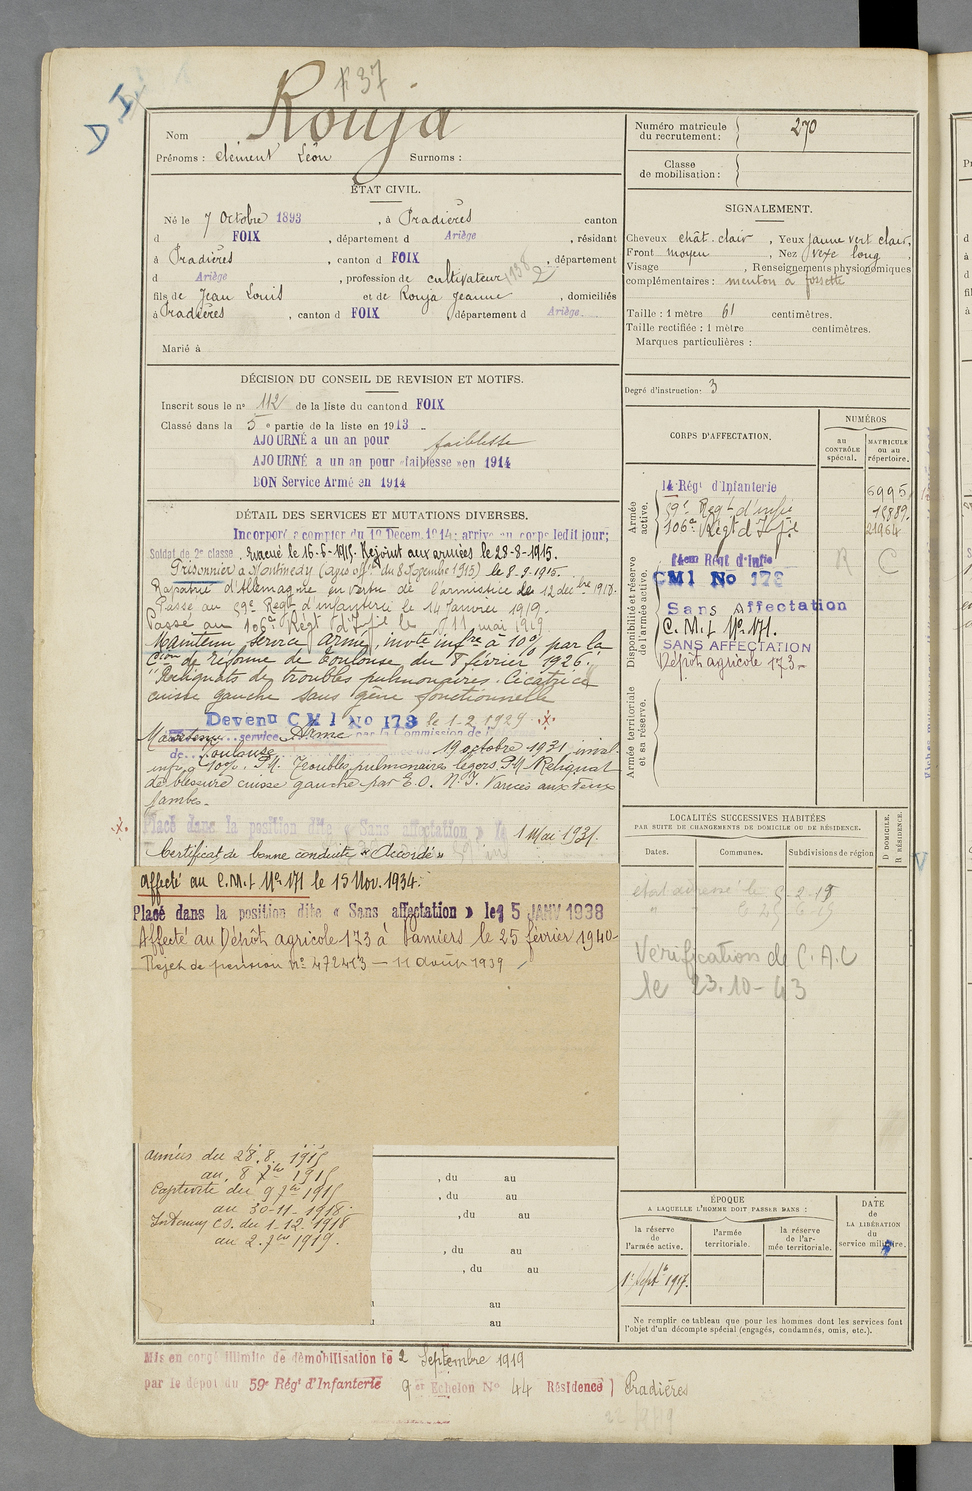 F 37
D I
Nom Rouja
Prénoms : Clément Léon Surnoms :
ÉTAT CIVIL.
Né le 7 Octobre 1893, à Pradières canton
d FOIX, département d Ariège, résidant
à Pradières, canton d FOIX, département
d Ariège, profession de cultivateur 1938 2
fils de Jean Louis et de Rouja Jeanne, domiciliés
à Pradières, canton d FOIX, département d Ariège.
Marié à
DÉCISION DU CONSEIL DE REVISION ET MOTIFS.
Inscrit sous le n° 112 de la liste du canton d FOIX
Classé dans la 5e partie de la liste en 1913
AJOURNÉ a un an pour faiblesse
AJOURNÉ a un an pour «faiblesse» en 1914
BON Service Armé en 1914
DÉTAIL DES SERVICES ET MUTATIONS DIVERSES.
Incorporé a compter du Décem. 1914; arrivé au corps ledit jour;
Soldat de 2e classe. Evacué le 16-6-1915. Rejoint aux armées le 28-8-1915.
Prisonnier à Montmédy (avis offel du 8 9embre 1915) le 8-9-1915.
Rapatrié d'Allemagne en vertu de l'armistice le 12 décbre 1918.
Passé au 59e Régt d'infanterie le 14 Janvier 1919.
Passé au 106e Régt d'Infie le 11 mai 1919
Maintenu service armé, invte infre à 10% par la
Cion de réforme de Toulouse du 8 février 1926.
"Reliquats de troubles pulmonaires. Cicatrice
cuisse gauche sans gêne fonctionnelle
Devenu CMI No 173 le 1-2-1929
Maintenu service Armé par la Commission de
de Toulouse du 19 octobre 1931 inval.
infre à 10%. P.M. Troubles pulmonaires légers. P.M Reliquat
de blessure cuisse gauche par E.O. N.I. Varices aux deux
jambes.
Placé dans la position dite « Sans affectation » le 1 Mai 1931.
Certificat de bonne conduite «Accordé»
Affecté au C.M.I No 171 le 15 Nov. 1934.
Placé dans la position dite « Sans affectation » le 15 JANV 1938
Affecté au Dépôt agricole 173 à Pamiers le 25 février 1940
Rejet de pension No 472413 — 11 Août 1939
armées du 28.8.1915
au 8 7bre 1915
Captivité du 9 7bre 1915
au 30-11-1918.
Intérieur C.S. du 1.12.1918
au 2.7bre 1919.
, du au
, du au
, du au
, du au
, du au
au
au
Mis en congé illimité de démobilisation le 2 Septembre 1919
par le dépôt du 59e Régt d'Infanterie 9e Echelon No 44 Résidence Pradières
Numéro matricule du recrutement : 270
Classe de mobilisation :
SIGNALEMENT.
Cheveux chât. clair, Yeux jaune vert clair,
Front moyen, Nez vexe long,
Visage , Renseignements physionomiques
complémentaires : menton à fossette
Taille : 1 mètre 61 centimètres.
Taille rectifiée : 1 mètre centimètres.
Marques particulières :
Degré d'instruction: 3
CORPS D'AFFECTATION.
NUMÉROS
au CONTRÔLE spécial.
MATRICULE ou au répertoire.
Armée active.
14 Régt d'Infanterie 6995
59e Régt d'infie 18889.
106e Régt d'Infie 21964
Disponibilité et réserve de l'armée active.
14em Régt d'Infie R C
CMI No 173
Sans Affectation
C.M.I No 171.
SANS AFFECTATION
Dépôt agricole 173
Armée territoriale et sa réserve.
LOCALITÉS SUCCESSIVES HABITÉES
PAR SUITE DE CHANGEMENTS DE DOMICILE OU DE RÉSIDENCE.
Dates. Communes. Subdivisions de région
D. DOMICILE. R. RÉSIDENCE.
V
état adressé le 5-2-19
Vérifications de C.A.C
le 23.10-43
ÉPOQUE
A LAQUELLE L'HOMME DOIT PASSER DANS :
la réserve de l'armée active.
l'armée territoriale.
la réserve de l'armée territoriale.
DATE de LA LIBÉRATION du service militaire.
1er Septbre 1917.
Ne remplir ce tableau que pour les hommes dont les services font
l'objet d'un décompte spécial (engagés, condamnés, omis, etc.).